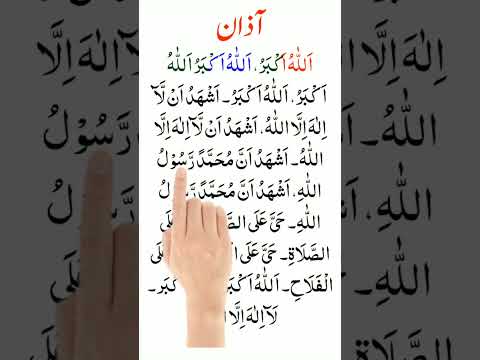 آذان
اَللّٰهُ اَكْبَرُ، اَللّٰهُ اَكْبَرُ اَللّٰهُ
اَكْبَرُ، اَللّٰهُ اَكْبَرُ۔ اَشْهَدُ اَنْ لَّآ
اِلٰهَ اِلَّا اللّٰهُ، اَشْهَدُ اَنْ لَّآ اِلٰهَ اِلَّا
اللّٰهُ۔ اَشْهَدُ اَنَّ مُحَمَّدً رَّسُوْلُ
اللّٰهِ، اَشْهَدُ اَنَّ مُحَمَّدً
اللّٰهِ۔ حَیَّ عَلَی
الصَّلَاةِ۔ حَیَّ عَلَی
الْفَلَاحِ۔ اَللّٰهُ
لَآ اِلٰهَ اِلَّا